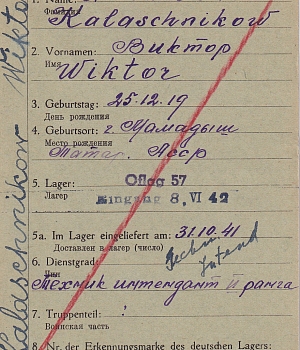 1. Name:
Фамилия
Kalaschnikow
2. Vornamen: Виктор
Имя
Wiktor
3. Geburtstag: 25.12.19
День рождения
4. Geburtsort: г. Мамадыш
Место рождения
Татар. Асср
5. Lager: Oflag 57
Лагер
Eingang 8. VI 42
5a. Im Lager eingeliefert am: 31.10.41
Доставлен в лагер (число)
6. Dienstgrad:
Чин
Техник интендант II ранга
7. Truppenteil: !
Воинская часть
8. Nr. der Erkennungsmarke des deutschen Lagers:
Kalaschnikow Wikto